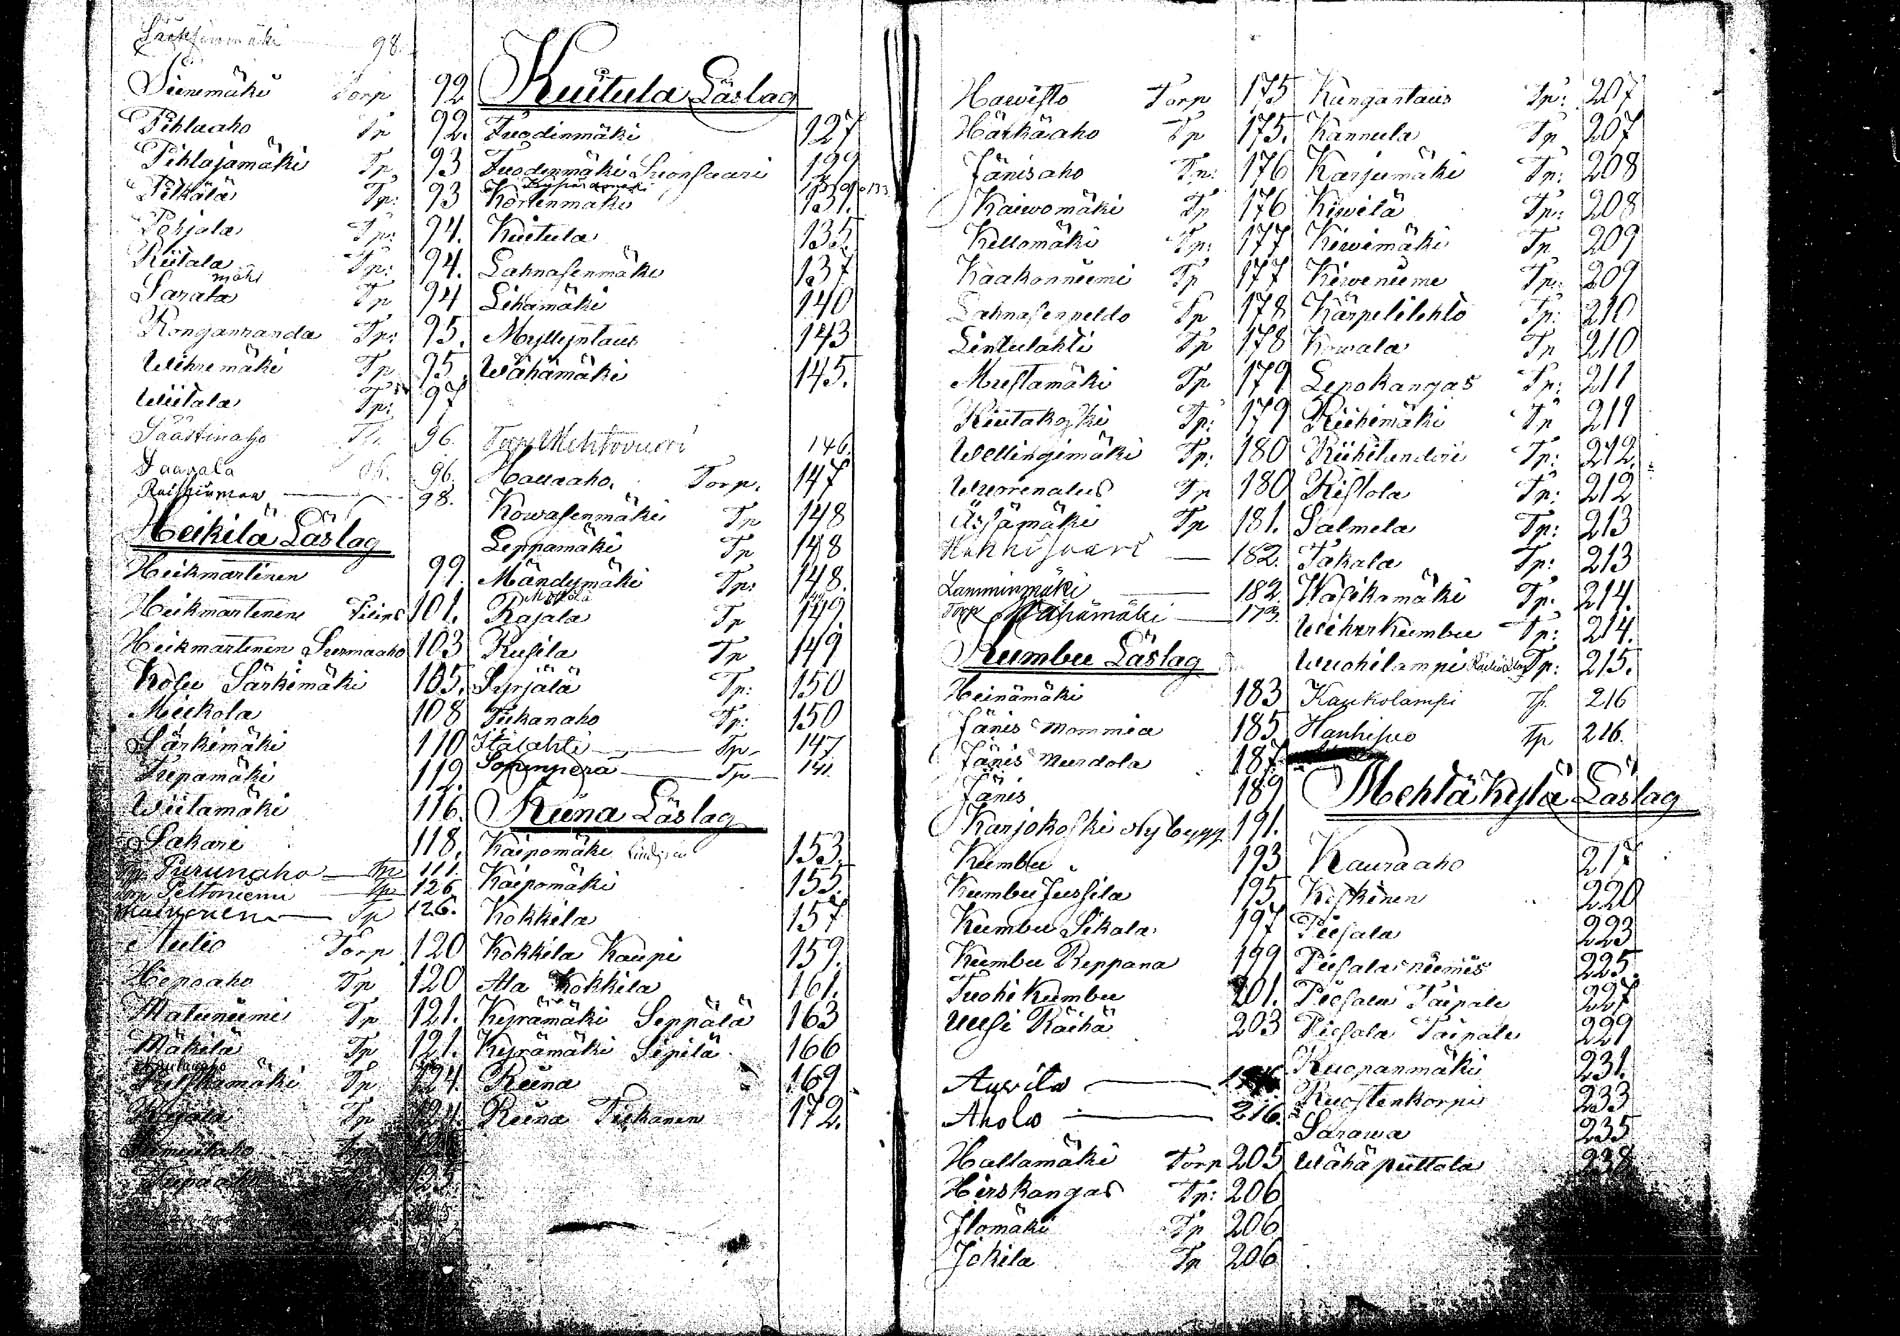 Sääksenmäki 98.
Sienemäki Torp 92
Pihlaaho Tp 92.
Pihlajamäki Tp 93
Pitkälä Tp: 93
Pohjala Tp: 94.
Riitala Tp: 94.
Sarala mäki Tp 94
Ronganranda Tp: 95.
Wihremäki Tp 95
Wiitala Tp: 97
Säästinaho Tp. 96.
Saarala 96.
98.
Heikilä Läslag
Heikmartinen 99.
Heikmartinen Filips 101.
Heikmartinen Surmaaho 103
Kolu Särkimäki 105.
Mukola 108
Särkimäki 110
Tiepamäki 112.
Wiitamäki 116.
Sakari 118.
Purunaho Tp 111
Peltoniemi Tp 126
Tp 126.
Aulio Torp 120
Hepoaho Tp 120
Matuniemi Tp 121.
Mäkilä Tp 121.
Tp 124
Tp 124.
Kuitula Läslag
Tuodinmäki 127
Tuodinmäki Suonsaari 129
Kortenmäki 131.
Kuitula 135
Lahnasenmäki 137
Lihamäki 140
Myllyntaus 143
Wähämäki 145.
Torp Mehtovuori 146.
Hallaaho. Torp. 147
Kowasenmäki Tp 148
Leppamäki Tp 148
Mändymäki Tp: 148.
Rajala Tp 149
Rusila Tp 149
Syrjälä Tp: 150
Tiikanaho Tp: 150
Itälahti Tp 147
Sopenperä Tp 141
Riina Läslag
Kaipomäki 153
Kaipomäki 155.
Kokkila 157
Kokkila Kaupi 159.
Ala Kokkila 161.
Kyrämäki Seppälä 163
Kyrämäki Sipilä 166
Riina 169
Riina Tiikanen 172.
Hawisto Torp 175
Härkäaho Tp 175.
Jänisaho Tp: 176
Kaiwomäki Tp 176
Kellomäki Tp: 177
Kaakonniemi Tp 177
Lahnasenpeldo Tp 178
Lintulahti Tp 178
Mustamäki Tp 179
Riutakoski Tp: 179
Wellingimäki Tp: 180
Wuorenalus Tp 180
Ässämäki Tp 181.
Hanhisuari 182.
Lamminmäki 182.
Torp Wähämäki 173.
Kumbu Läslag
Heinämäki 183
Jänis Mommia 185
Jänis Murdola 187
Jänis 189
Karjokoski Nybygg 191.
Kumbu 193
Kumbu Jussila 195.
Kumbu Sikala 197
Kumbu Reppana 199
Tuohi Kumbu 201.
Uusi Räihä 203
Auvila
Ahola 216.
Hallamäki Torp 205
Hirskangas Tp: 206
Ilomäki Tp 206
Jokila Tp 206
Kangastaus Tp: 207
Kannula Tp 207
Karjumäki Tp: 208
Kiwilä Tp: 208
Kiwimäki Tp 209
Kiweniemi Tp: 209
Kärpetilehto Tp: 210
Kowala Tp 210
Lepokangas Tp: 211
Riihimäki Tp 211
Riihilundi Tp: 212.
Ristola Tp: 212
Salmela Tp: 213
Takala Tp: 213
Wasikamäki Tp: 214.
Wihurkumbu Tp: 214.
Wuohilampi Tp: 215.
Kaukolampi Tp. 216
Hanhisuo Tp 216.
Mehtäkylä Läslag
Kauraaho 217
Koskinen 220
Piisala 223
Piisalanniemi 225.
Piisala Taipale 227
Piisala Taipale 229
Ruopanmäki 231.
Ruostenkorpi 233
Sarawa 235
Wähäputtola 238